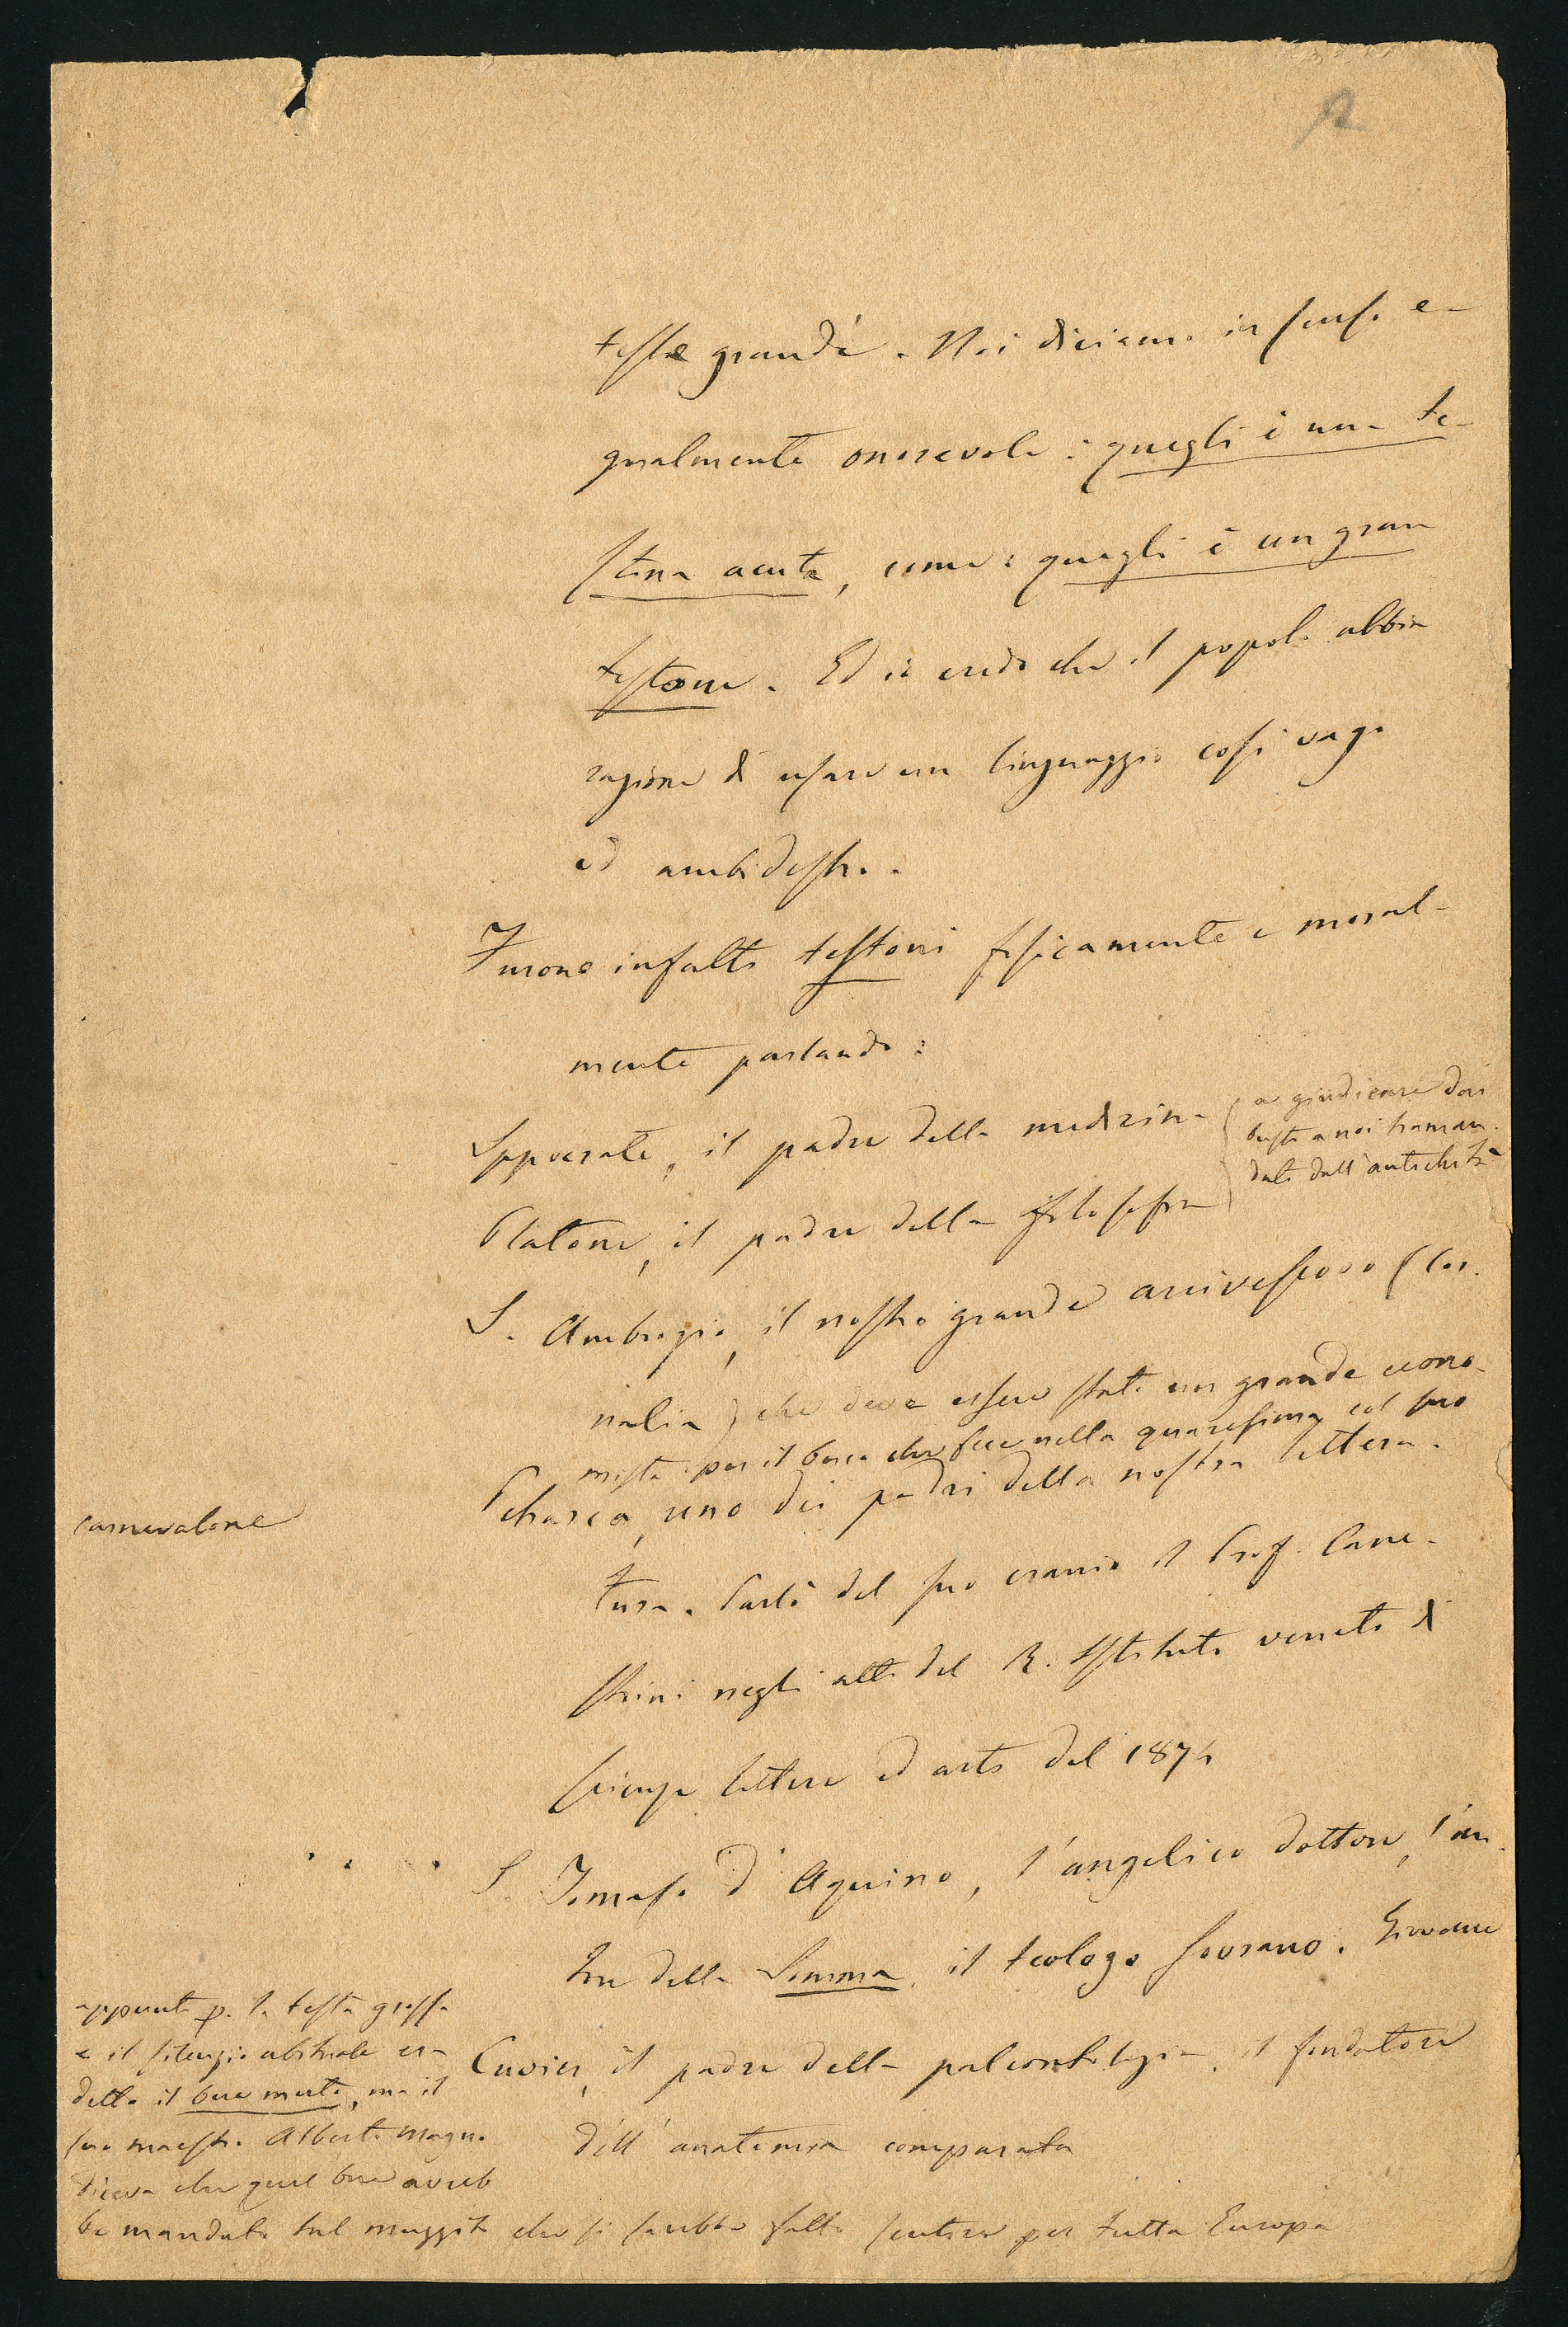 2
teste grandi. Noi diciamo in senso e-
gualmente onorevole: quegli è una te-
stina acuta, come: quegli è un gran
testone. Ed io credo che il popolo abbia
ragione di usare un linguaggio così vago
ed ambidestro.
Furono infatti testoni fisicamente e moral-
mente parlando:
Ippocrate, il padre della medicina
Platone, il padre della filosofia
( a giudicare dai
busti a noi traman-
dati dall'antichità
S. Ambrogio, il nostro grande arcivescovo (Cor.
nalia) che deve essere stato un grande econo-
mista per il buco che fece nella quaresima col suo
carnevalone
Petrarca, uno dei padri della nostra lettera-
tura. Parlò del suo cranio il Prof. Cane-
strini negli atti del R. Istituto veneto di
scienze lettere ed arti del 1874
S. Tomaso d'Aquino, l'angelico dottore, l'au-
tore della Somma, il teologo sovrano. Giovane
appunto p. la testa grossa
e il silenzio abituale era
detto il bue muto, ma il
suo maestro Alberto magno
diceva che quel bue avreb
be mandato tal muggito che si sarebbe fatto sentire per tutta Europa
Cuvier, il padre della paleontologia, il fondatore
dell'anatomia comparata